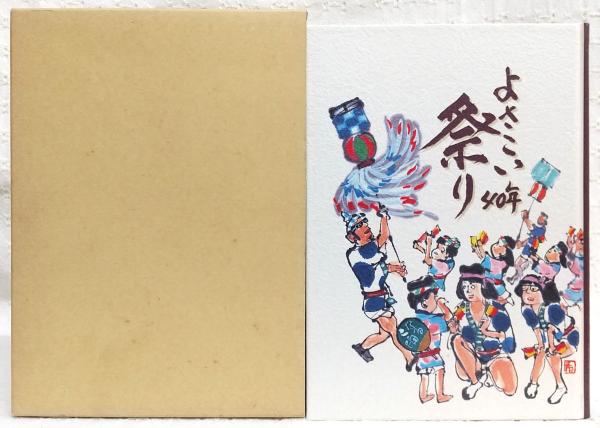 よさこい
祭り
40年